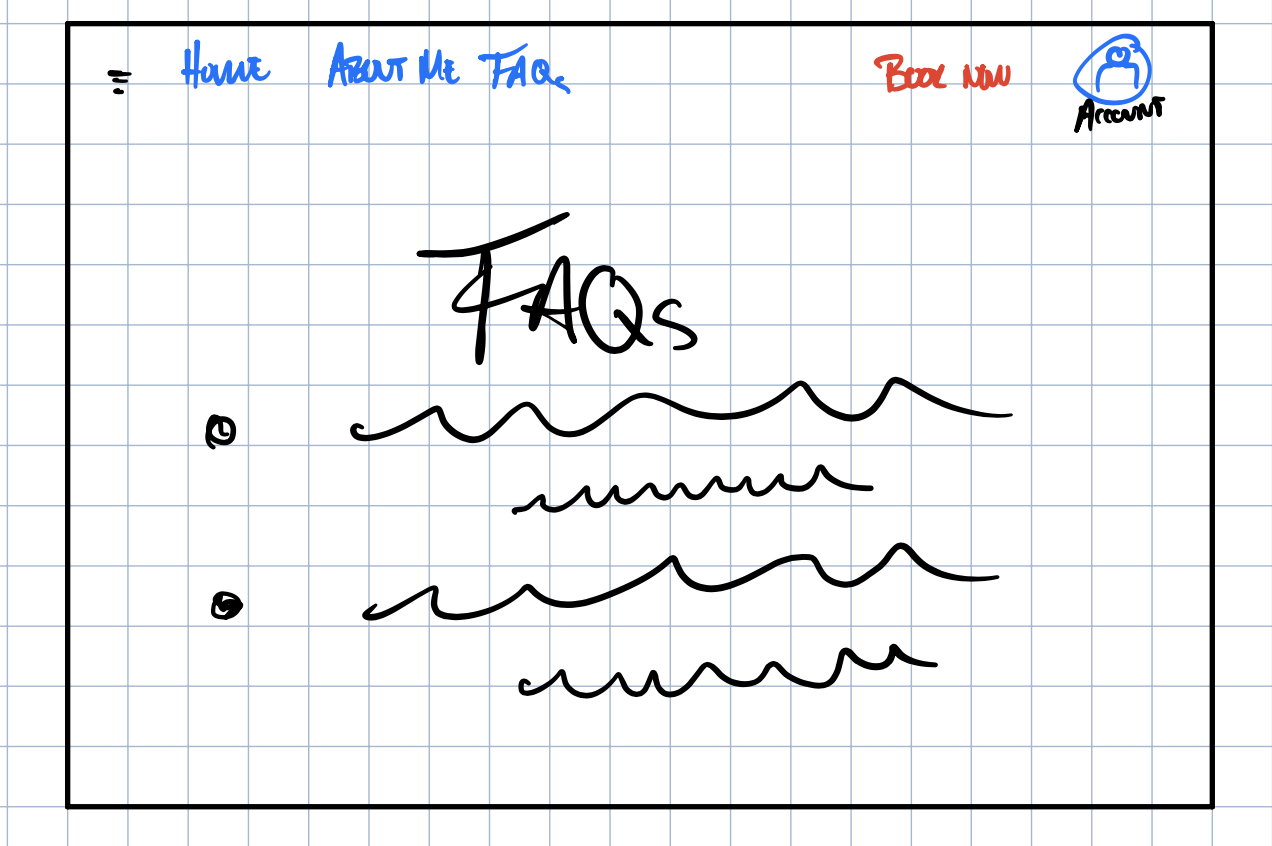 Home About Me FAQs Book Now
Account
FAQs